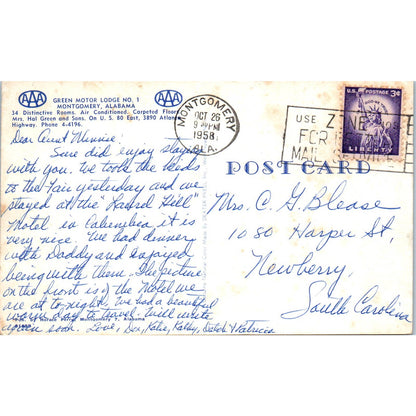 AAA
GREEN MOTOR LODGE NO. 1
MONTGOMERY, ALABAMA
AAA
34 Distinctive Rooms. Air Conditioned. Carpeted Floors.
Mrs. Hal Green and Sons. On U. S. 80 East, 3890 Atlanta
Highway. Phone 4-4196.
Dear Aunt Minnie,
Sure did enjoy staying
with you. We took the kids
to the Fair yesterday and we
stayed at the "Laurel Hill"
Motel in Columbia, it is
very nice. We had dinner
with Daddy and enjoyed
being with them. The picture
on the front is of the Motel we
are at to-night. We had a beautiful
warm day to travel. Will write
again soon. Love, Katie, Kathy, & Patricia
Montgomery 7, Alabama
MONTGOMERY
OCT 26
9 PM
1958
ALA.
USE
FOR
MAIL
U.S. POSTAGE 3¢
LIBERTY
POST CARD
Mrs. C. G. Blease
1080 Harper St.
Newberry,
South Carolina